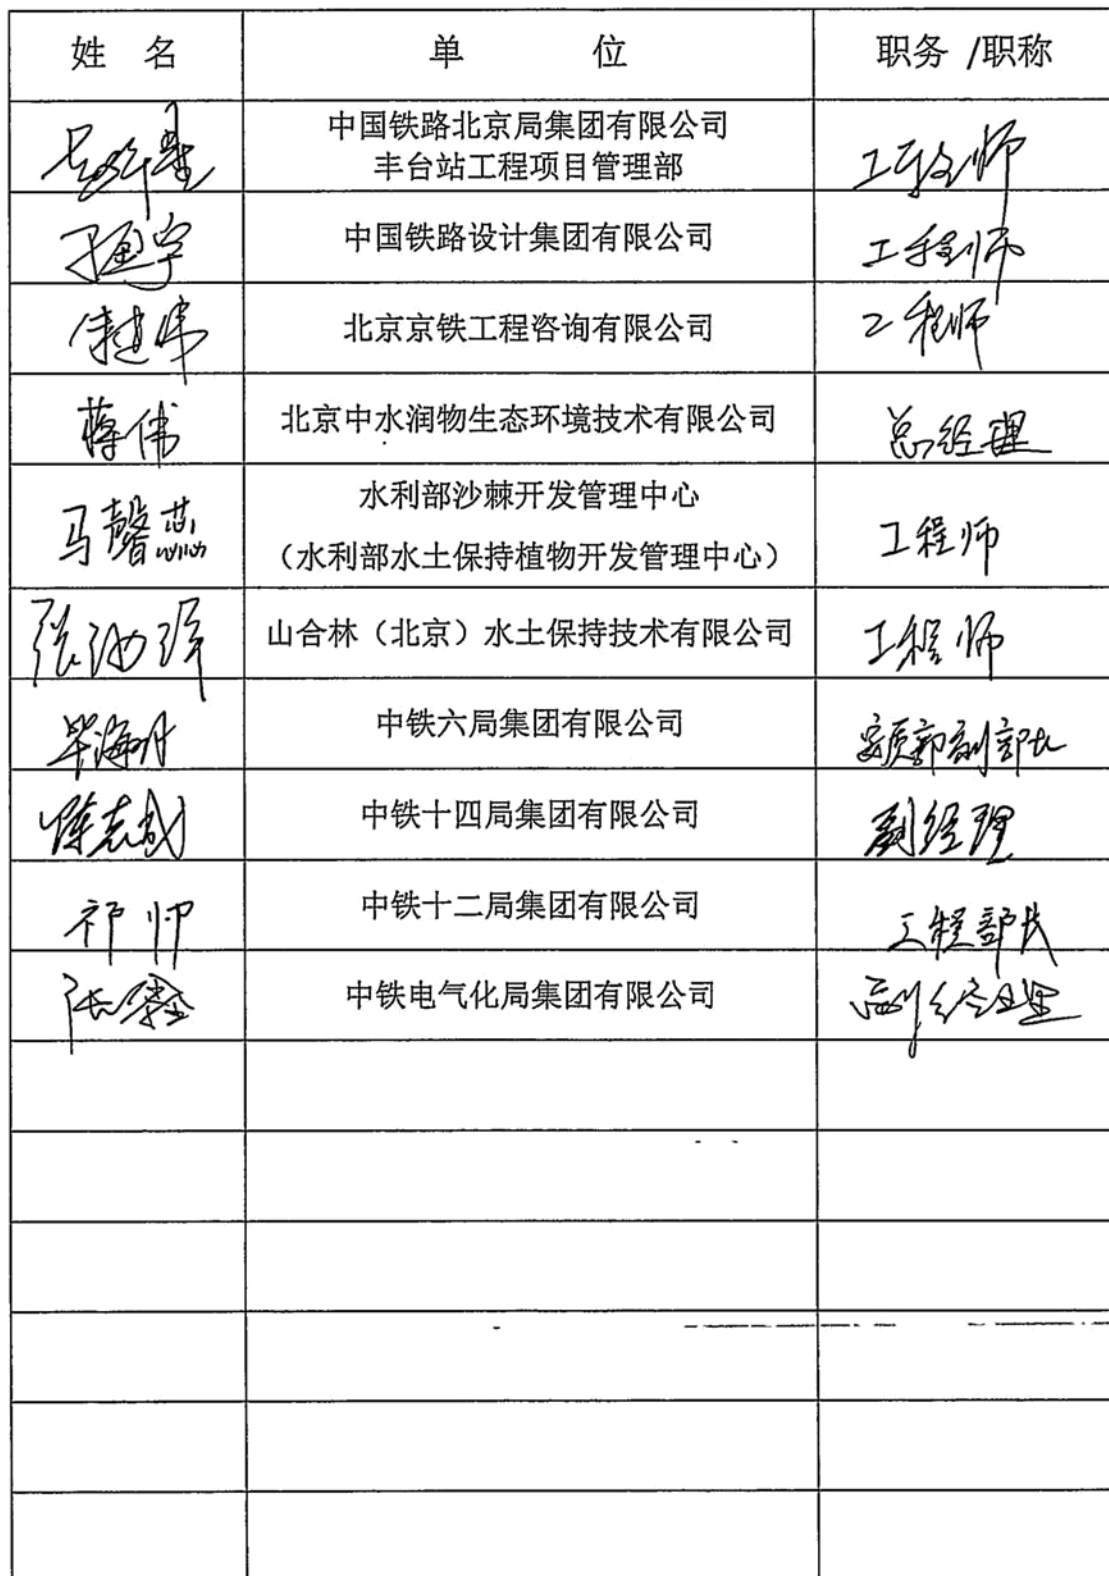 姓 名 单 位 职务 /职称
中国铁路北京局集团有限公司
丰台站工程项目管理部 工程师
中国铁路设计集团有限公司 工程师
北京京铁工程咨询有限公司 工程师
蒋伟 北京中水润物生态环境技术有限公司 总经理
水利部沙棘开发管理中心
马馨蕊 (水利部水土保持植物开发管理中心) 工程师
山合林（北京）水土保持技术有限公司 工程师
中铁六局集团有限公司 安质部副部长
陈志成 中铁十四局集团有限公司 副经理
祁帅 中铁十二局集团有限公司 工程部长
中铁电气化局集团有限公司 副经理